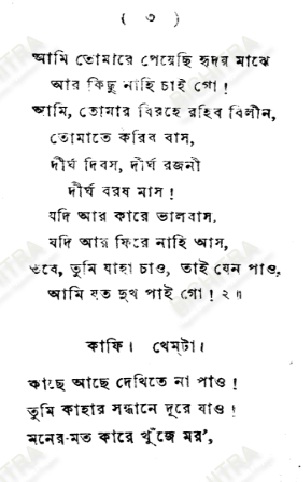 ( ৩ )
আমি তোমারে পেয়েছি হৃদয় মাঝে
আর কিছু নাহি চাই গো !
আমি, তোমার বিরহে রহিব বিলীন,
তোমাতে করিব বাস,
দীর্ঘ দিবস, দীর্ঘ রজনী
দীর্ঘ বরষ মাস !
যদি আর কারে ভালবাস,
যদি আর ফিরে নাহি আস,
তবে, তুমি যাহা চাও, তাই যেন পাও,
আমি যত দুখ পাই গো ! ২॥
কাফি। খেম্‌টা।
কাছে আছে দেখিতে না পাও !
তুমি কাহার সন্ধানে দূরে যাও !
মনের-মত কারে খুঁজে মর’,